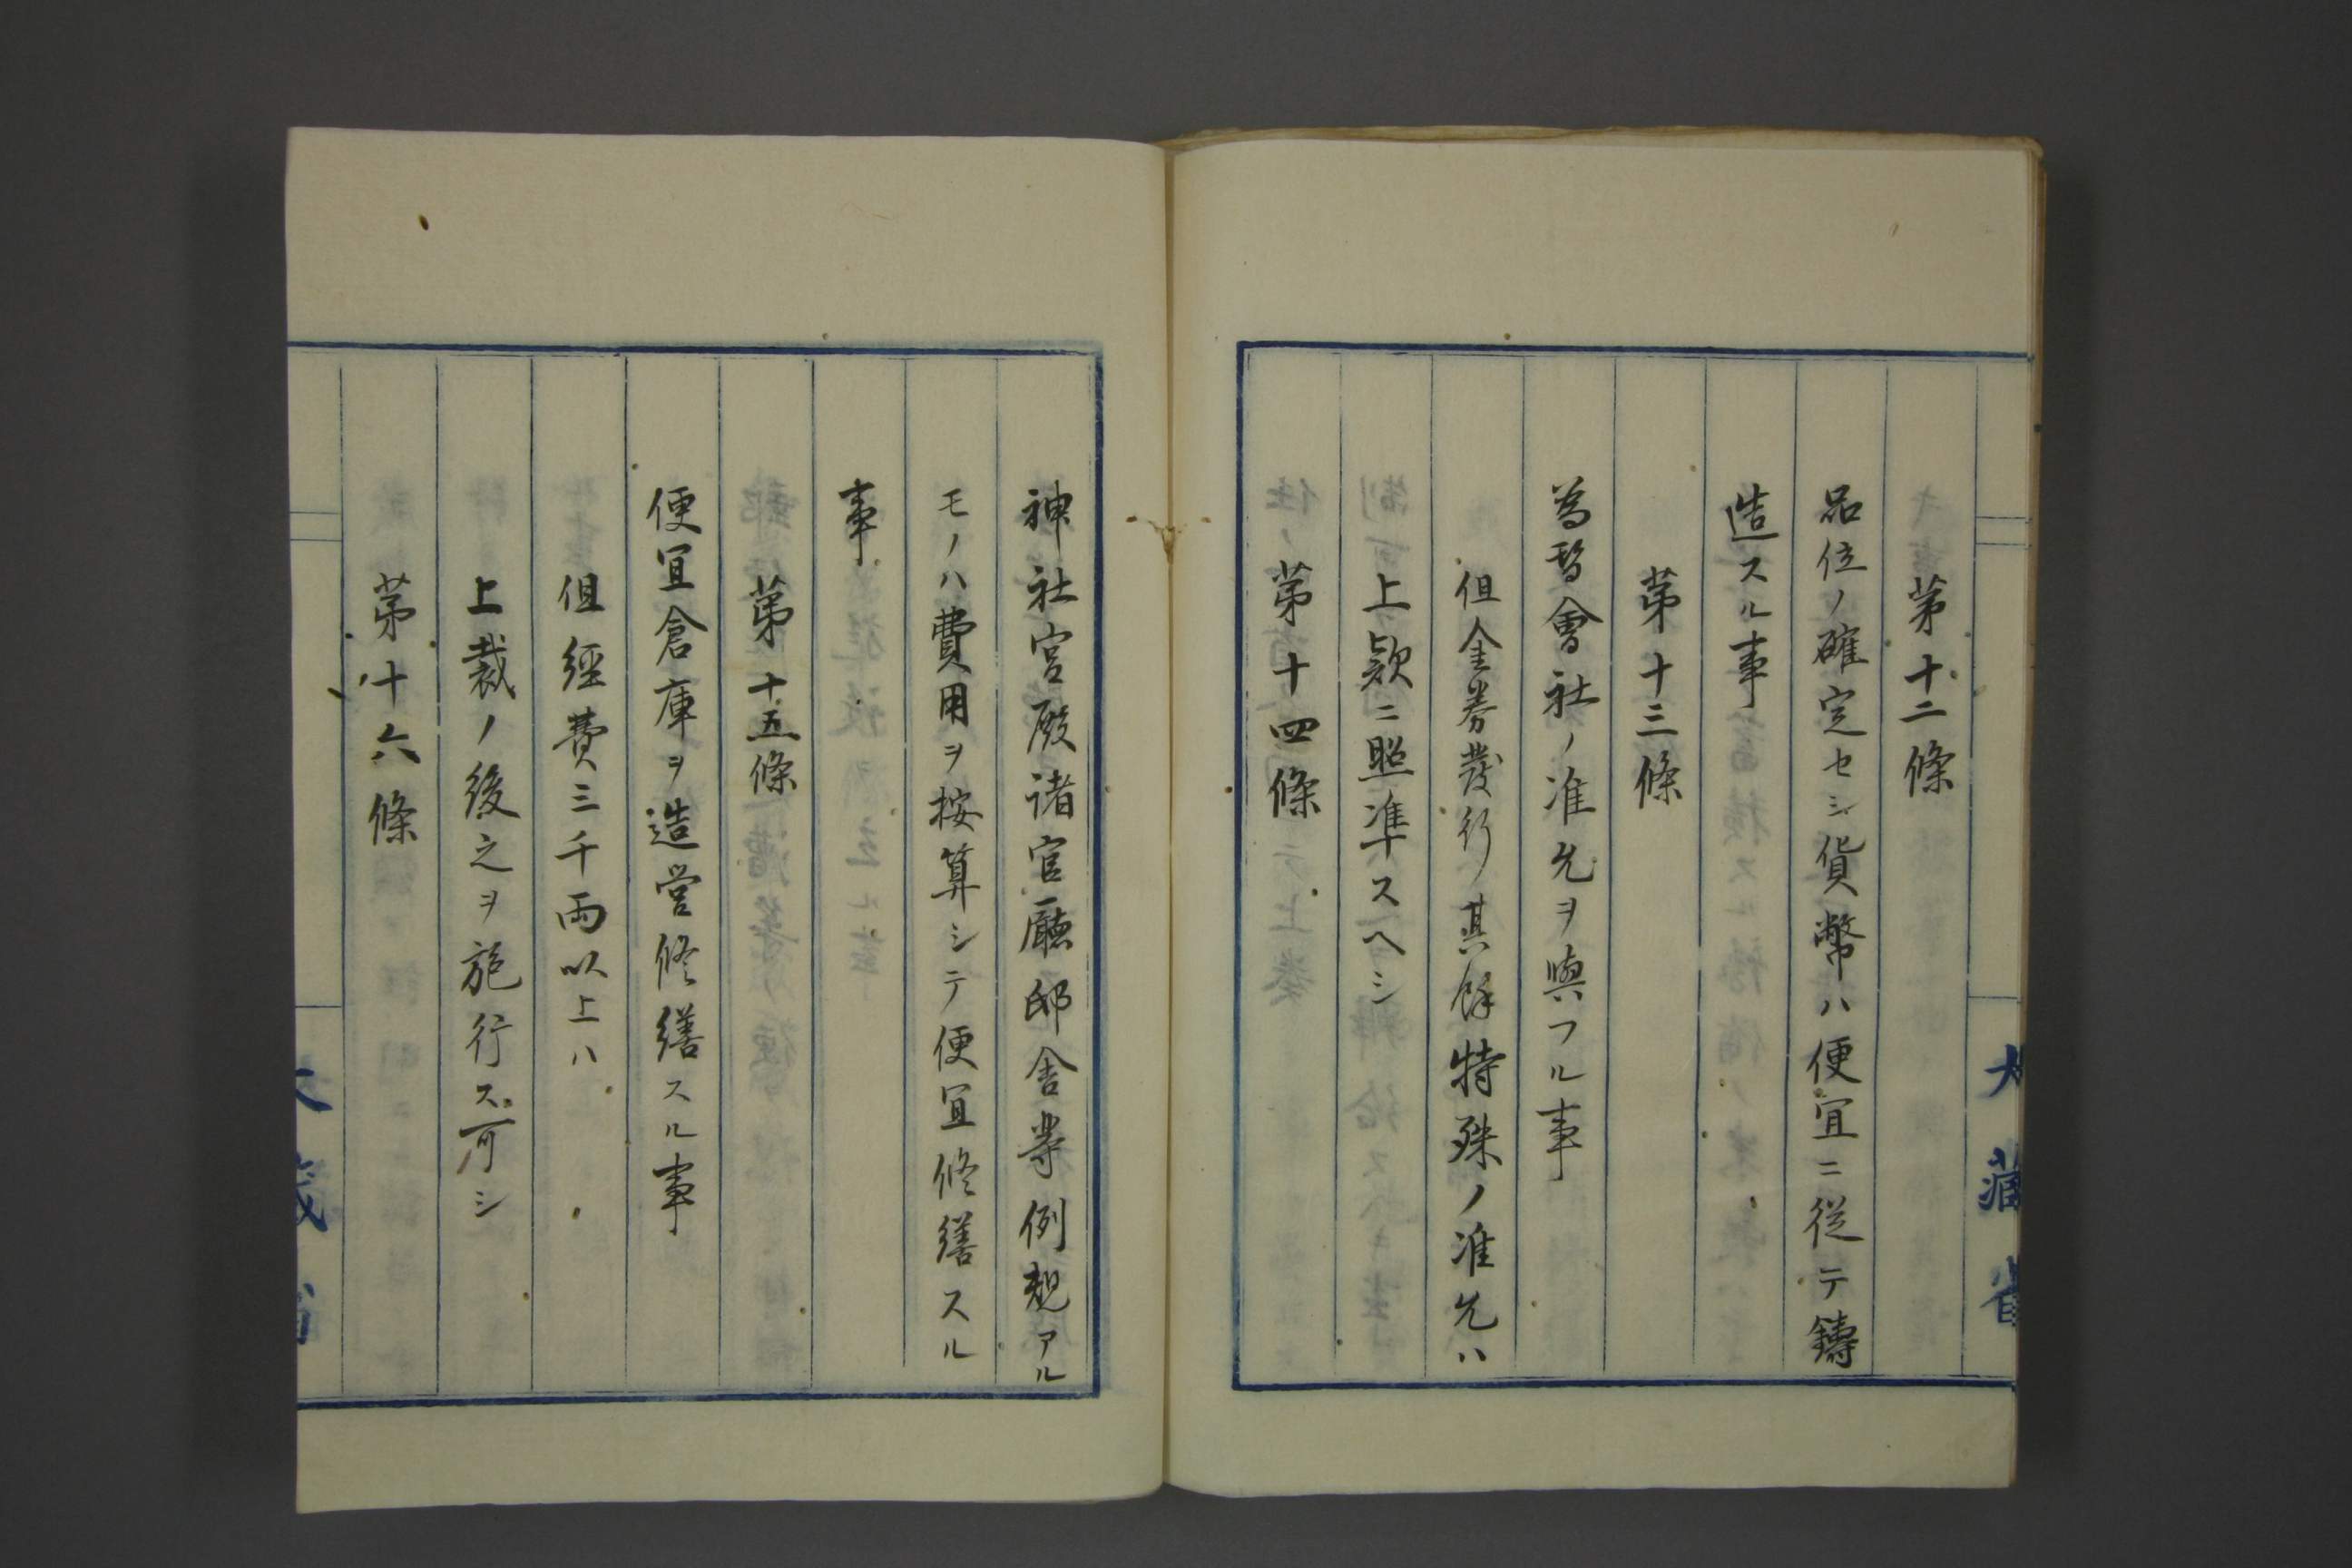 第十二條
品位ノ確定セシ貨幣ハ便宜ニ從テ鑄
造スル事
第十三條
為替會社ノ准允ヲ與フル事
但金券發行其餘特殊ノ准允ハ
上款ニ照準スヘシ
第十四條
大藏省
神社宮殿諸官廳邸舍等例規アル
モノハ費用ヲ按算シテ便宜修繕スル
事
第十五條
便宜倉庫ヲ造営修繕スル事
但經費三千両以上ハ
上裁ノ後之ヲ施行ス可シ
第十六條
大藏省